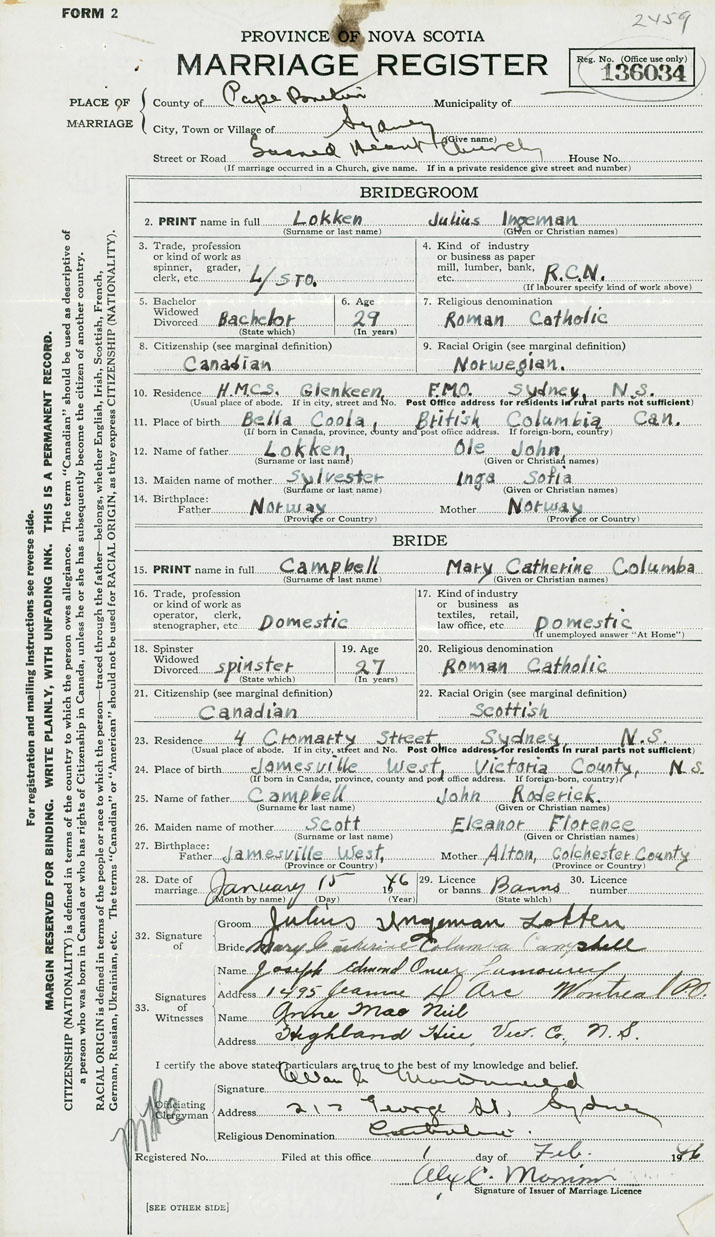 FORM 2
2459
PROVINCE OF NOVA SCOTIA
MARRIAGE REGISTER
Reg. No. (Office use only)
136034
PLACE OF MARRIAGE
County of Cape Breton Municipality of
City, Town or Village of Sydney
(Give name)
Street or Road Sacred Heart Church House No.
(If marriage occurred in a Church, give name. If in a private residence give street and number)
BRIDEGROOM
2. PRINT name in full Lokken Julius Ingeman
(Surname or last name) (Given or Christian names)
3. Trade, profession or kind of work as spinner, grader, clerk, etc. L/STO.
4. Kind of industry or business as paper mill, lumber, bank, etc. R.C.N.
(If labourer specify kind of work above)
5. Bachelor Widowed Divorced Bachelor
(State which)
6. Age 29
(In years)
7. Religious denomination
Roman Catholic
8. Citizenship (see marginal definition)
Canadian
9. Racial Origin (see marginal definition)
Norwegian.
10. Residence H.M.C.S. Glenkeen, F.M.O. Sydney, N.S.
(Usual place of abode. If in city, street and No. Post Office address for residents in rural parts not sufficient)
11. Place of birth Bella Coola, British Columbia Can.
(If born in Canada, province, county and post office address. If foreign-born, country)
12. Name of father Lokken, Ole John,
(Surname or last name) (Given or Christian names)
13. Maiden name of mother Sylvester Inga Sofia
(Surname or last name) (Given or Christian names)
14. Birthplace:
Father Norway Mother Norway
(Province or Country) (Province or Country)
BRIDE
15. PRINT name in full Campbell Mary Catherine Columba
(Surname or last name) (Given or Christian names)
16. Trade, profession or kind of work as operator, clerk, stenographer, etc Domestic
17. Kind of industry or business as textiles, retail, law office, etc Domestic
(If unemployed answer "At Home")
18. Spinster Widowed Divorced spinster
(State which)
19. Age 27
(In years)
20. Religious denomination
Roman Catholic
21. Citizenship (see marginal definition)
Canadian
22. Racial Origin (see marginal definition)
Scottish
23. Residence 4 Cromarty Street Sydney, N.S.
(Usual place of abode. If in city, street and No. Post Office address for residents in rural parts not sufficient)
24. Place of birth Jamesville West, Victoria County, N.S.
(If born in Canada, province, county and post office address. If foreign-born, country)
25. Name of father Campbell John Roderick.
(Surname or last name) (Given or Christian names)
26. Maiden name of mother Scott Eleanor Florence
(Surname or last name) (Given or Christian names)
27. Birthplace:
Father Jamesville West, Mother Alton, Colchester County
(Province or Country) (Province or Country)
28. Date of marriage January 15 1946
(Month by name) (Day) (Year)
29. Licence or banns Banns
(State which)
30. Licence number
32. Signature of
Groom Julius Ingeman Lokken
Bride Mary Catherine Columba Campbell
33. Signatures of Witnesses
Name Joseph Edmond Omer
Address 1495 Jeanne D Arc Montreal P.Q.
Name Anne Mac Neil
Address Highland Hill, Vict. Co., N.S.
I certify the above stated particulars are true to the best of my knowledge and belief.
Officiating Clergyman
Signature
Address George St, Sydney
Religious Denomination Catholic.
Registered No. Filed at this office 1 day of Feb. 1946
Alex C.
Signature of Issuer of Marriage Licence
[SEE OTHER SIDE]
For registration and mailing instructions see reverse side.
MARGIN RESERVED FOR BINDING. WRITE PLAINLY, WITH UNFADING INK. THIS IS A PERMANENT RECORD.
CITIZENSHIP (NATIONALITY) is defined in terms of the country to which the person owes allegiance. The term "Canadian" should be used as descriptive of
a person who was born in Canada or who has rights of Citizenship in Canada, unless he or she has subsequently become the citizen of another country.
RACIAL ORIGIN is defined in terms of the people or race to which the person—traced through the father—belongs, whether English, Irish, Scottish, French,
German, Russian, Ukrainian, etc. The terms "Canadian" or "American" should not be used for RACIAL ORIGIN, as they express CITIZENSHIP (NATIONALITY).